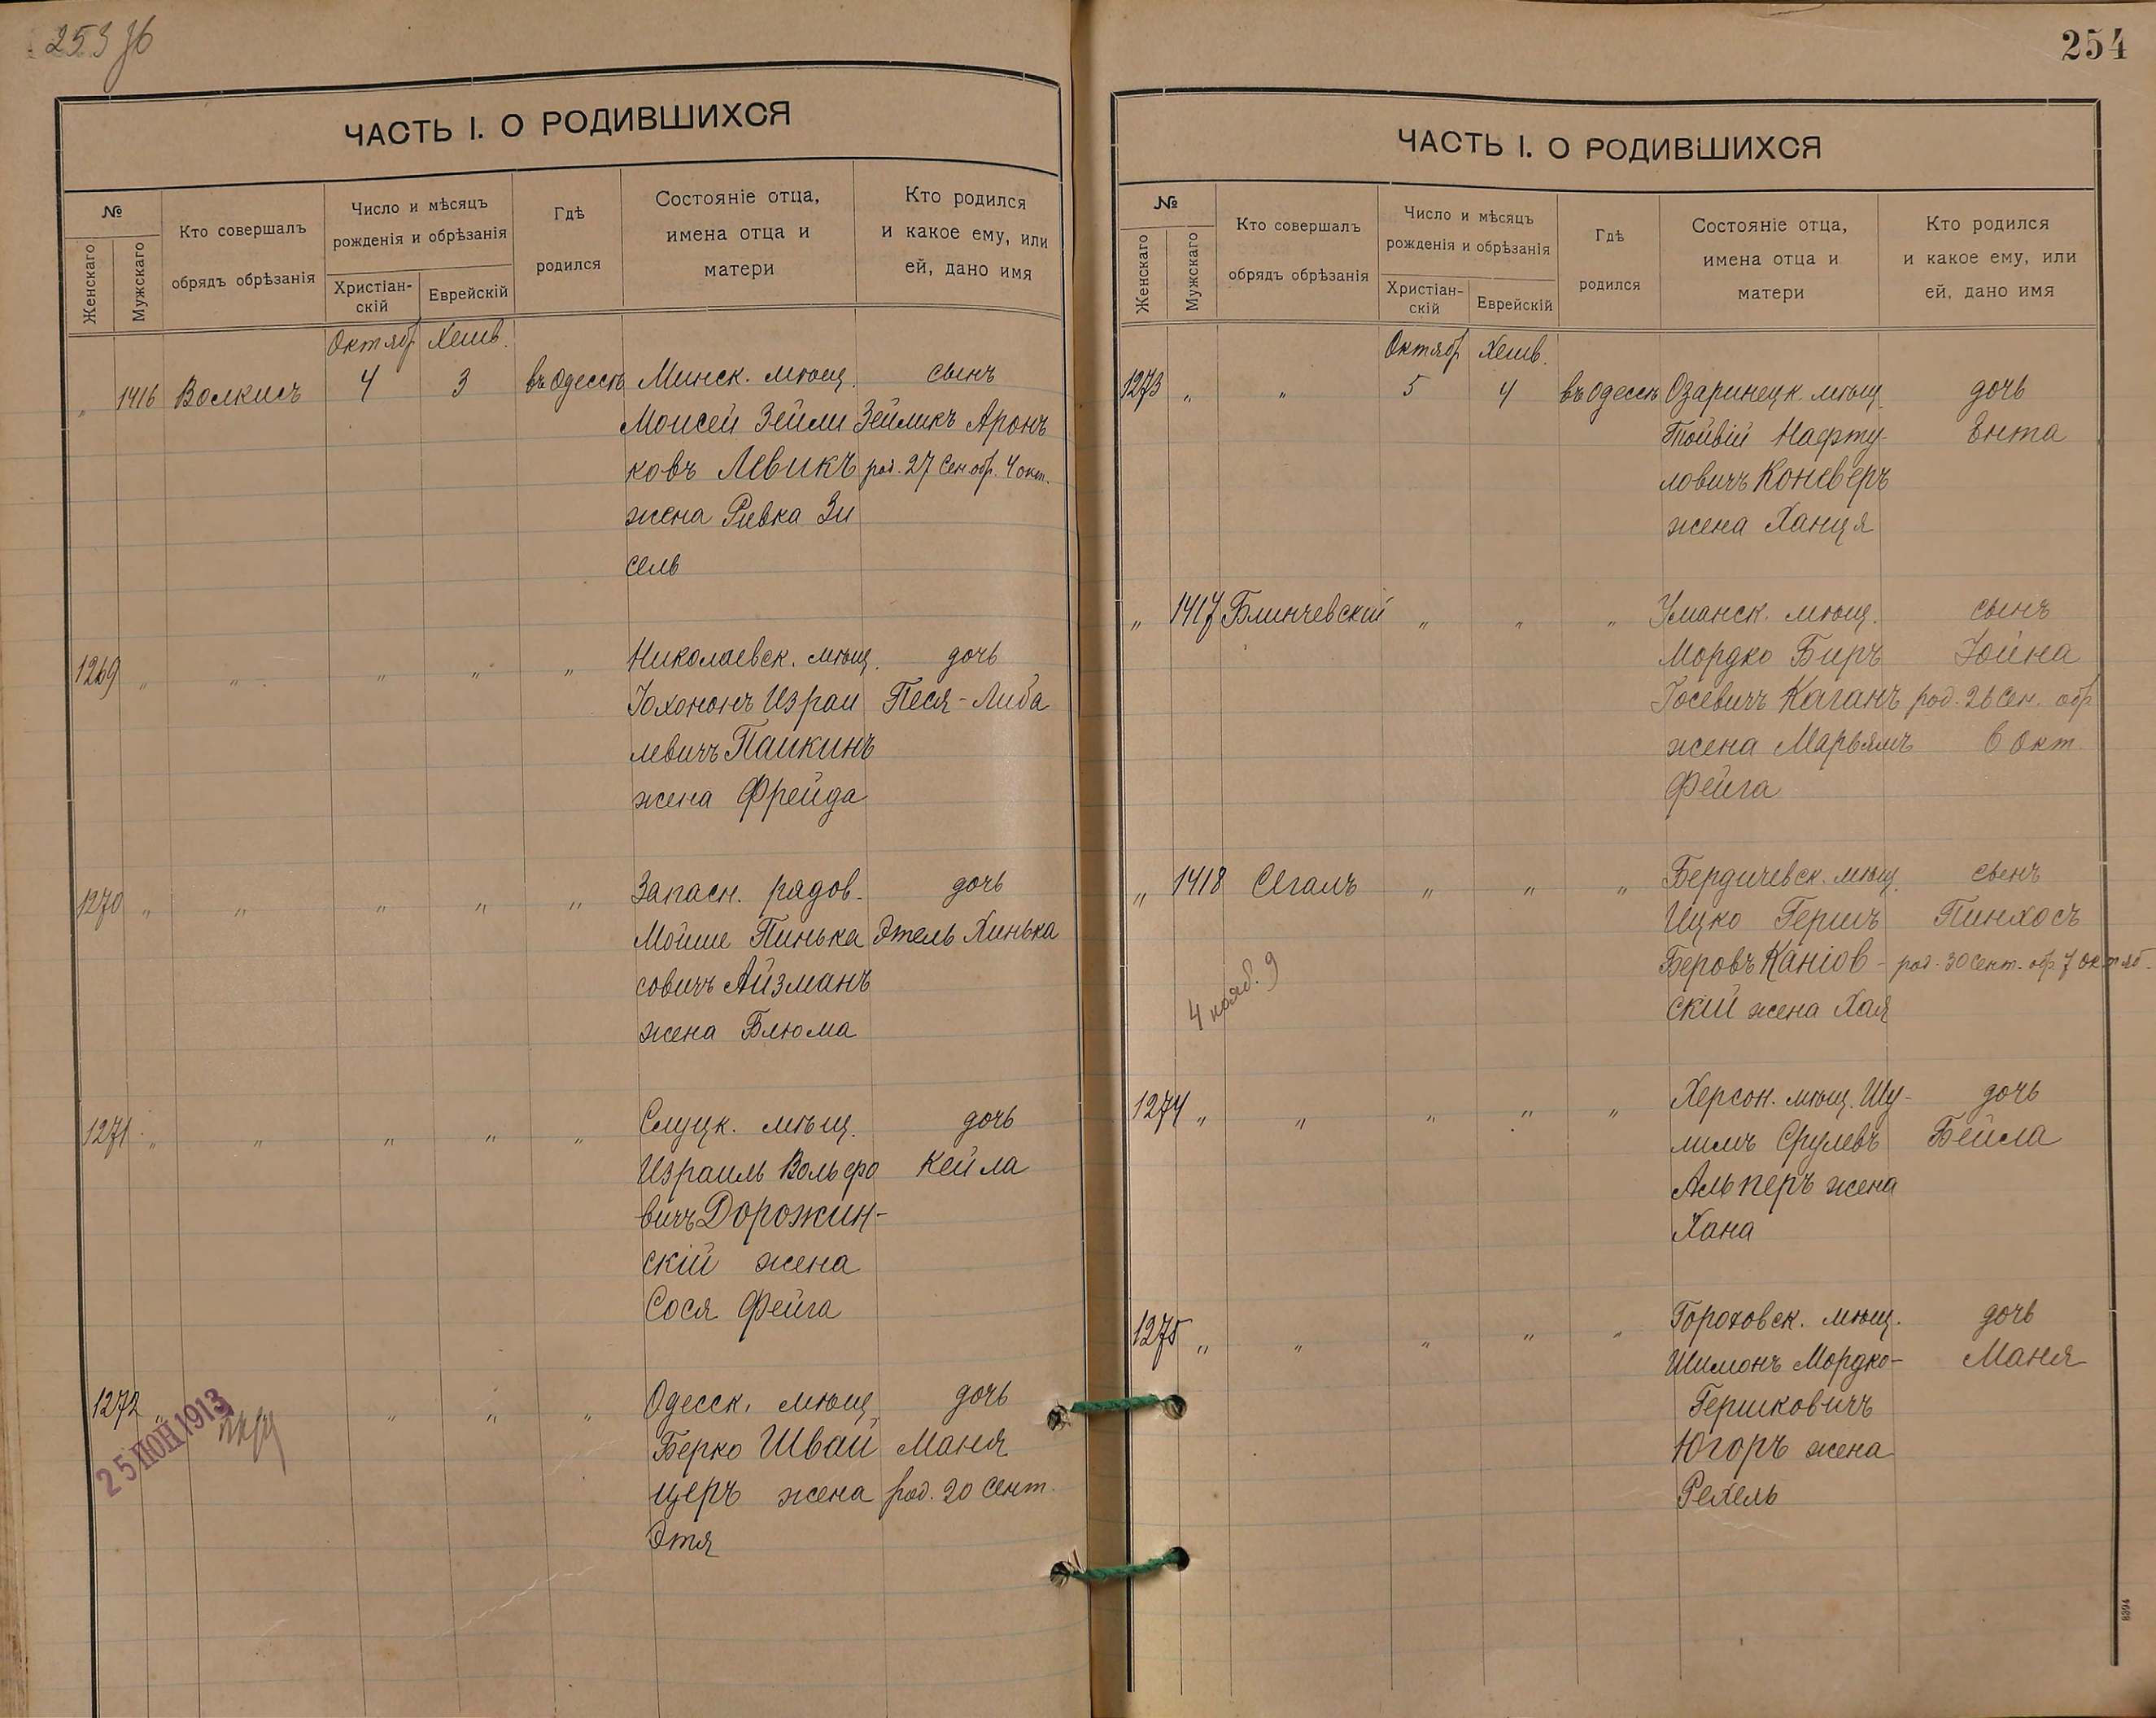 253 об
ЧАСТЬ I. О РОДИВШИХСЯ
№
Женскаго
Мужскаго
Кто совершалъ
обрядъ обрѣзанія
Число и мѣсяцъ
рожденія и обрѣзанія
Христіан-
скій
Еврейскій
Гдѣ
родился
Состояніе отца,
имена отца и
матери
Кто родился
и какое ему, или
ей, дано имя
Октябр Хешв.
„ 1416 Волкисъ 4 3 въ Одессѣ Минск. мѣщ. сынъ
Моисей Зейли Зейликъ Аронъ
ковъ Левикъ род. 27 Сен обр. 4 окт.
жена Ривка Зи
сель
1269 „ „ „ „ „ Николаевск. мѣщ. дочь
Іохононъ Израи Песя-Либа
левичъ Пайкинъ
жена Фрейда
1270 „ „ „ „ „ Запасн. рядов. дочь
Мойше Пинька Этель Хинька
совичъ Айзманъ
жена Блюма
1271 „ „ „ „ „ Слуцк. мѣщ. дочь
Израиль Вольфо Кейла
вичъ Дорожин-
скій жена
Сося Фейга
1272 „ „ „ „ Одесск. мѣщ. дочь
25 ІЮН 1913
Берко Швай Маня
церъ жена род. 20 Сент.
Этя
254
ЧАСТЬ I. О РОДИВШИХСЯ
№
Женскаго
Мужскаго
Кто совершалъ
обрядъ обрѣзанія
Число и мѣсяцъ
рожденія и обрѣзанія
Христіан-
скій
Еврейскій
Гдѣ
родился
Состояніе отца,
имена отца и
матери
Кто родился
и какое ему, или
ей, дано имя
Октябр Хешв.
1273 „ „ 5 4 въ Одессѣ Озаринецк. мѣщ. дочь
Тойвій Нафту- Ента
ловичъ Коневеръ
жена Ханця
„ 1417 Блинчевскій „ „ „ Уманск. мѣщ. сынъ
Мордко Биръ Іойна
Іосевичъ Каганъ род. 26 Сен. обр
жена Марьямъ 6 Окт
Фейга
„ 1418 Сегалъ „ „ „ Бердичевск. мѣщ. сынъ
Ицко Гершъ Пинхосъ
Беровъ Каніов- род. 30 Сент. обр 7 Октяб.
скій жена Хая
4 нояб. 9
1274 „ „ „ „ „ Херсон. мѣщ. Шу- дочь
лимъ Срулевъ Бейла
Альперъ жена
Хана
1275 „ „ „ „ „ Гороховск. мѣщ. дочь
Шимонъ Мордко- Маня
Гершковичъ
Югоръ жена
Рехель
8394